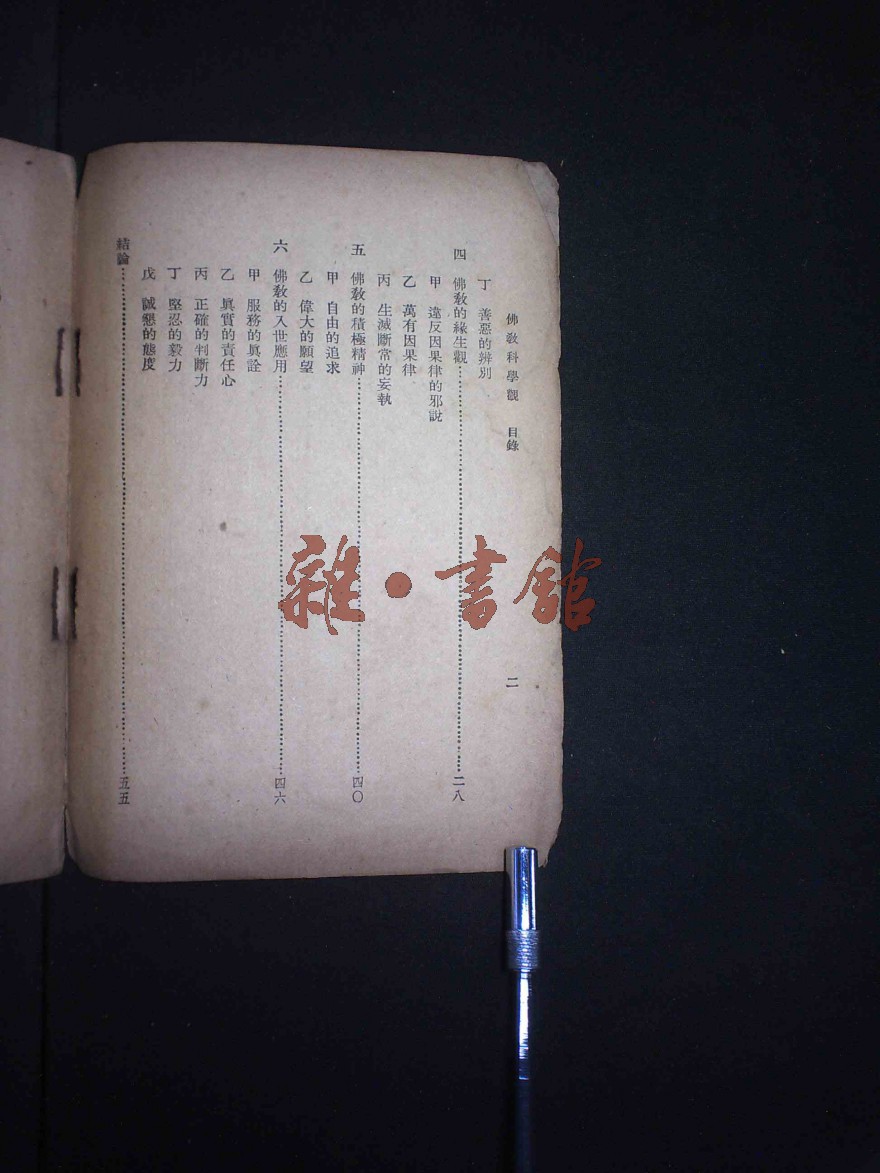 佛教科學觀　目錄　二
丁　善惡的辨別
四　佛教的緣生觀……二八
甲　違反因果律的邪說
乙　萬有因果律
丙　生滅斷常的妄執
五　佛教的積極精神……四〇
甲　自由的追求
乙　偉大的願望
六　佛教的入世應用……四六
甲　服務的眞詮
乙　眞實的責任心
丙　正確的判斷力
丁　堅忍的毅力
戊　誠懇的態度
結論……五五
雜·書館